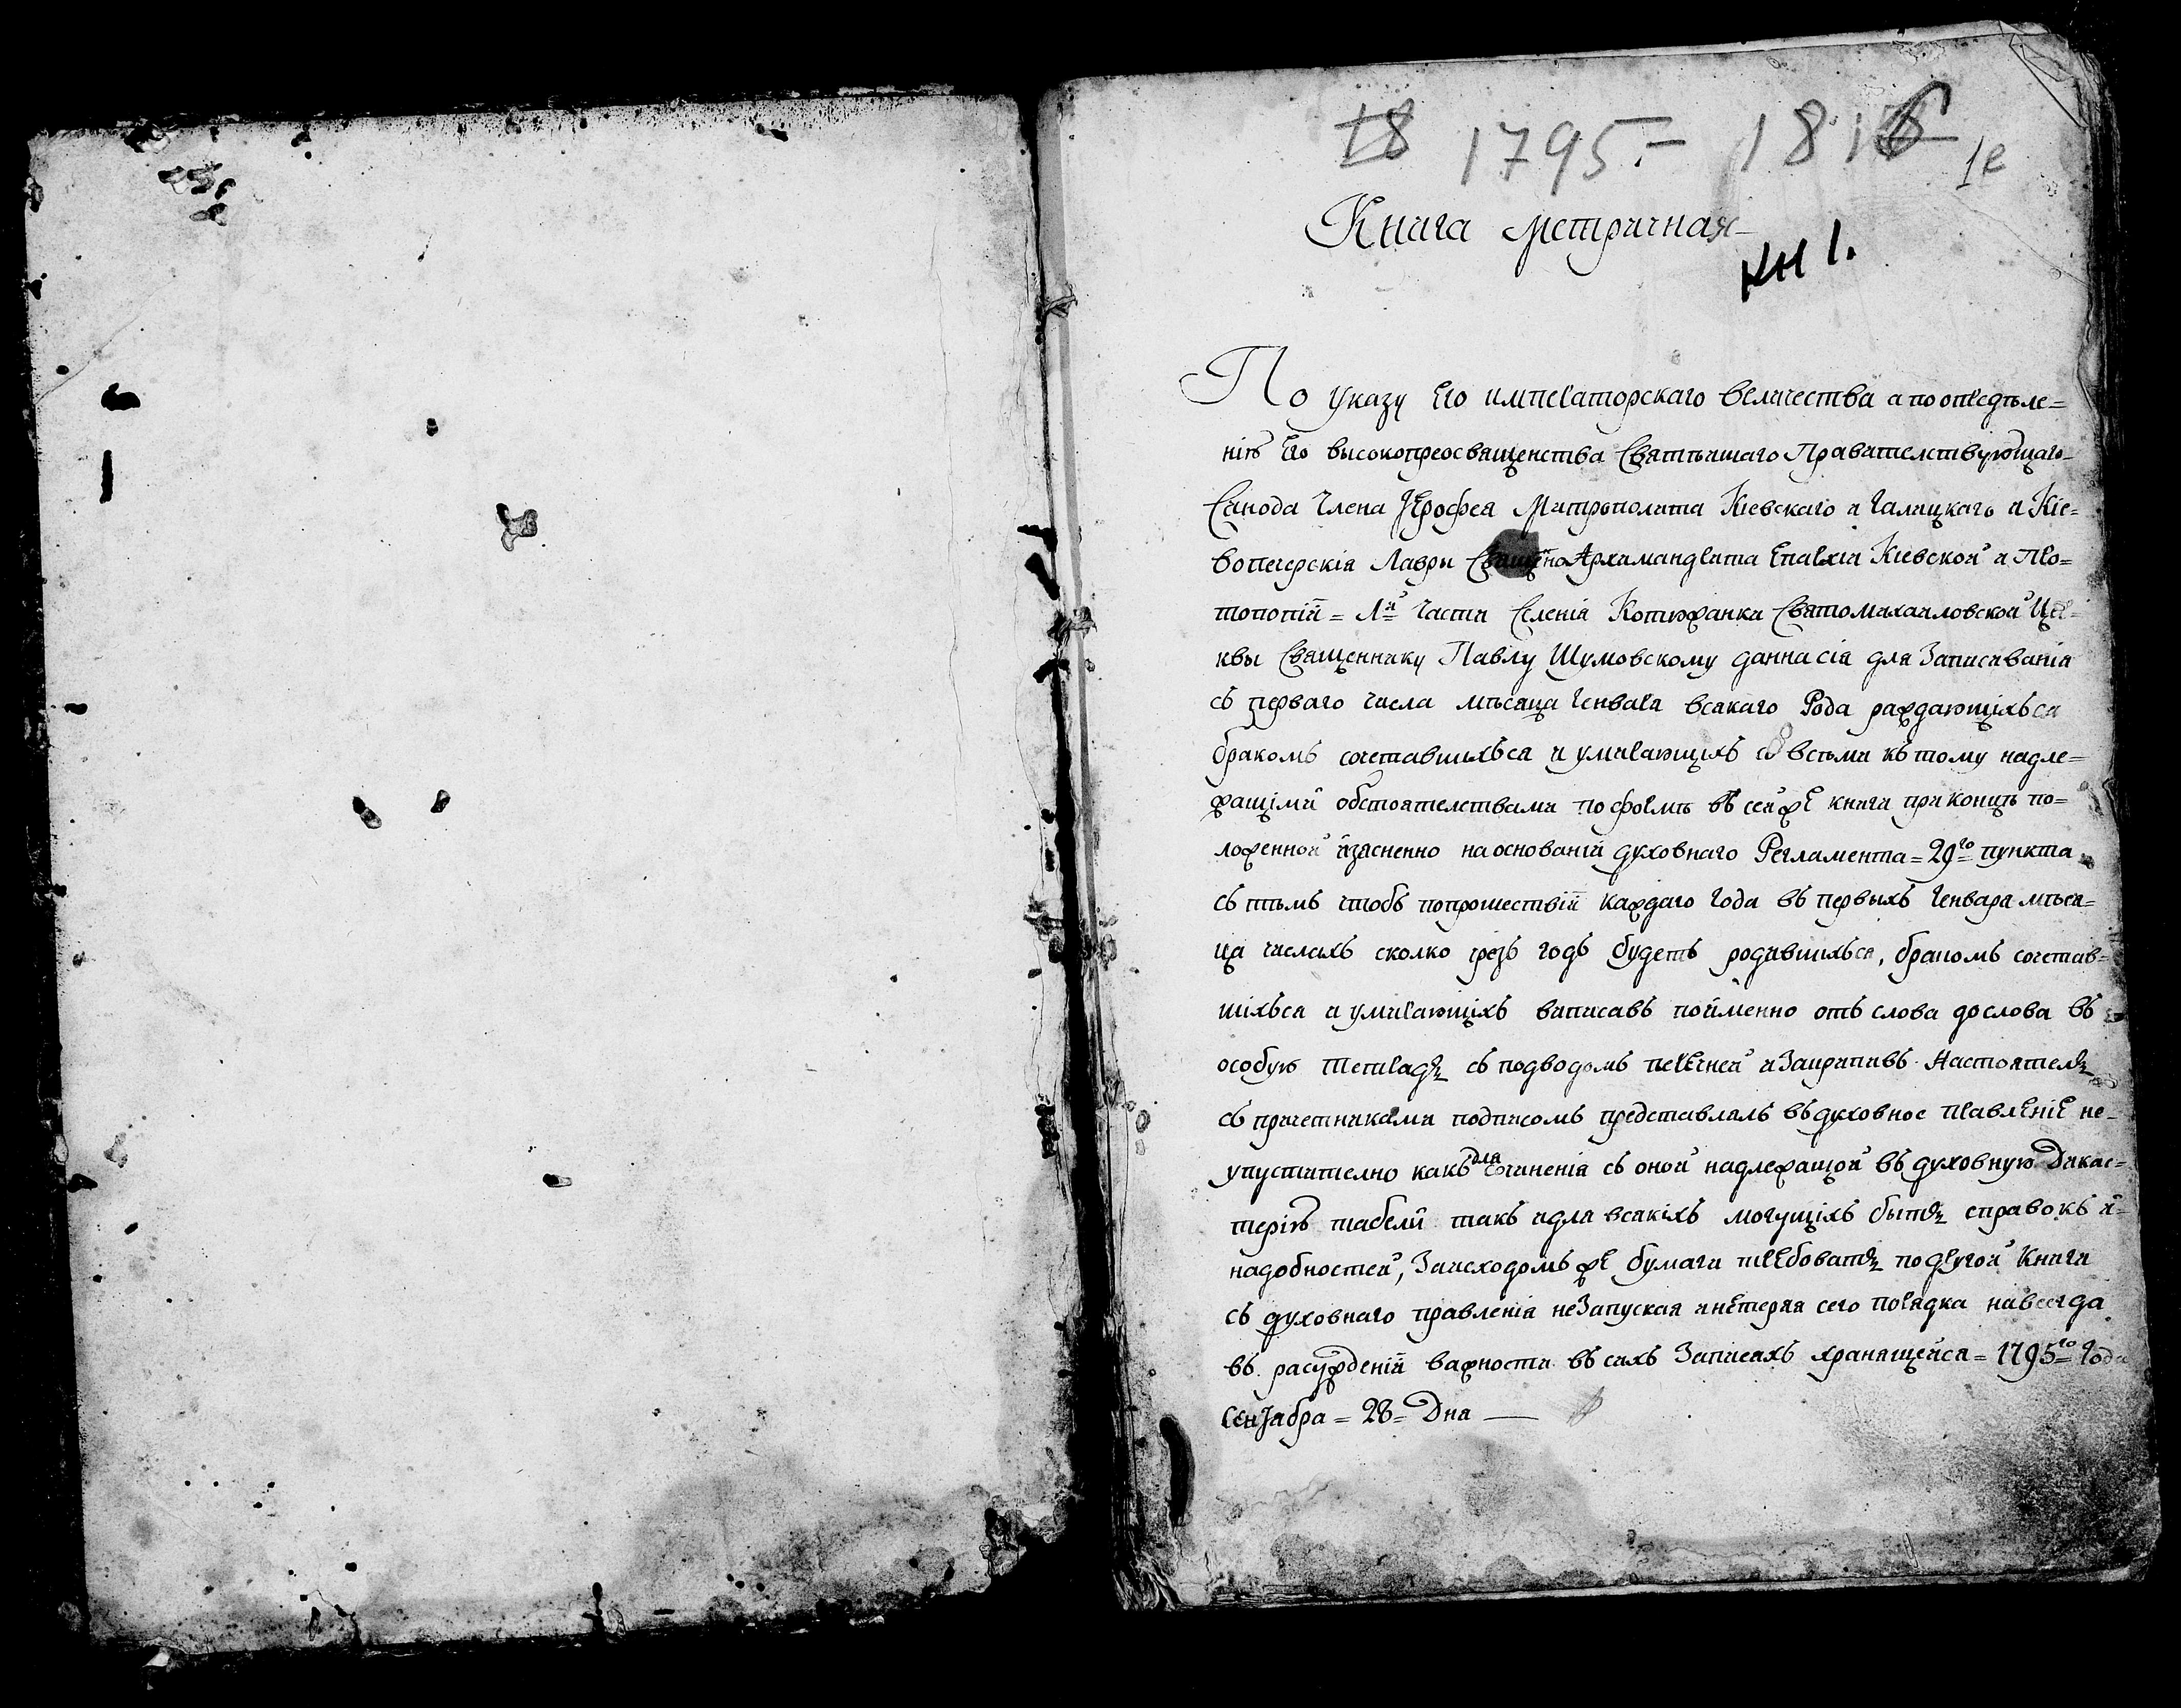 18 1795.- 1816
1е
Книга Метричная
кн 1.
По указу Его императорскаго величества а по опредѣле=
нію Его высокопреосвященства Святѣишаго Правителствующаго
Синода члена Іерофея Митрополита Кіевскаго и Галицкаго и Кіе=
вопечерскія Лаври Священно Архимандрита Епархіи Кіевской и Про=
топопіи = 1й части Селенія Котюжанки Святомихаиловской Цер=
кви Священнику Павлу Шумовскому данна сія для Записиванія
съ перваго числа мѣсяца Генваря всякаго Рода раждающихъся
бракомъ сочетавшихъся и умирающихъ со всѣми къ тому надле=
жащіми обстоятелствами по формѣ въ сей же книги при концѣ по=
ложенной изясненно на основаніи духовнаго Регламента = 29го пункта
съ тѣмъ чтобъ по прошествіи каждаго Года въ первыхъ Генваря мѣся=
ца числахъ сколко чрезъ годъ будетъ родившихъся, бракомъ сочетав=
шіхъся и умирающіхъ виписавъ поименно отъ слова до слова въ
особую Тетрадь съ подводомъ перечней и Закрѣпивъ Настоятель
съ причетниками подписомъ представлялъ въ духовное правленіе не=
упустително какъ для сочиненія съ оной надлежащой въ духовную Дикас=
терію табели такъ и для всякіхъ могущіхъ быть справокъ и=
надобностей, Заисходомъ же бумаги требовать по другой Книги
съ духовнаго правленія не Запуская и не теряя сего порядка навсегда
въ разсужденіи важности въ сихъ Записахъ хранящейся = 1795го Года
Сентабра = 28= Дня